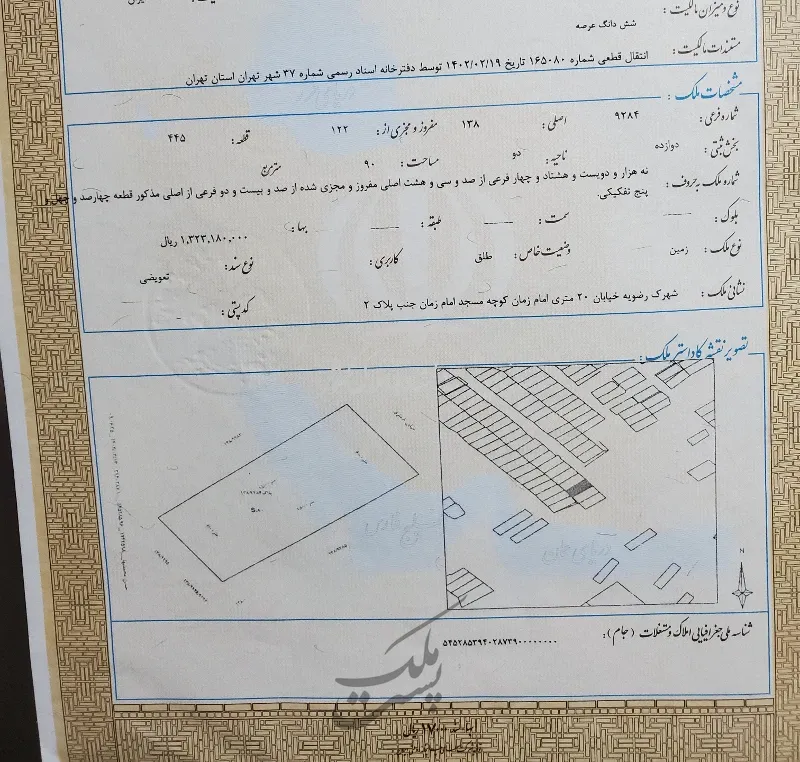 نوع و میزان مالکیت :
شش دانگ عرصه
مستندات مالکیت : انتقال قطعی شماره ۱۶۵۰۸۰ تاریخ ۱۴۰۲/۰۲/۱۹ توسط دفترخانه اسناد رسمی شماره ۳۷ شهر تهران استان تهران
مشخصات ملک :
شماره فرعی : ۹۲۸۴ اصلی : ۱۳۸ مفروز و مجزی از : ۱۲۲ قطعه : ۴۴۵
بخش ثبتی : دوازده ناحیه : دو مساحت : ۹۰ مترمربع
شماره ملک به حروف : نه هزار و دویست و هشتاد و چهار فرعی از صد و سی و هشت اصلی مفروز و مجزی شده از صد و بیست و دو فرعی از اصلی مذکور قطعه چهارصد و چهل و
پنج تفکیکی.
بلوک : سمت : طبقه : بها : ۱,۳۲۳,۱۸۰,۰۰۰ ریال
نوع ملک : زمین وضعیت خاص : طلق کاربری : نوع سند : تعویضی
نشانی ملک : شهرک رضویه خیابان ۲۰ متری امام زمان کوچه مسجد امام زمان جنب پلاک ۲ کد پستی :
تصویر نقشه کاداستر ملک :
N
شناسه ملی جغرافیایی املاک و مستغلات (جام) : ۵۴۵۲۸۵۳۹۴۰۲۸۷۳۹۰۰۰۰۰۰۰۰
ملک
پست